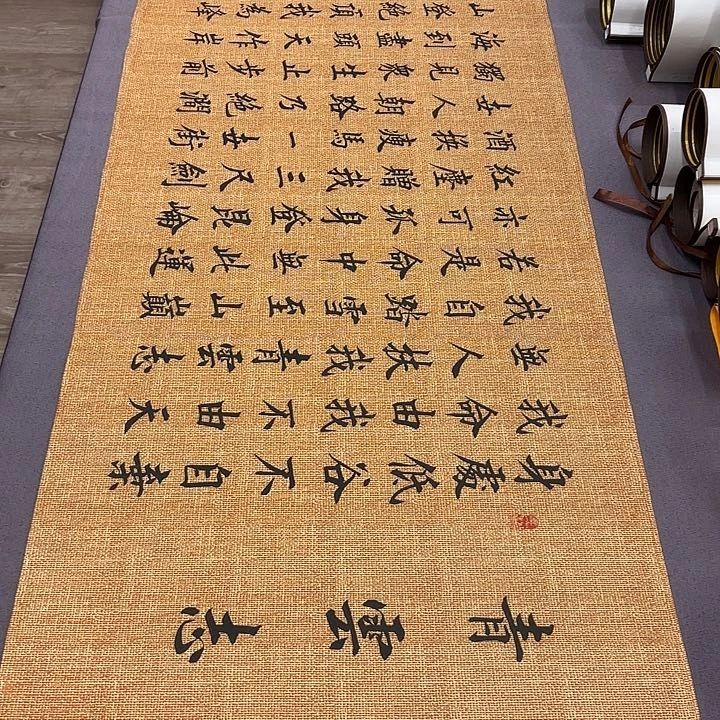 青雲志
身處低谷不自棄
我命由我不由天
無人扶我青雲志
我自踏雪至山巔
若是命中無此運
亦可孤身登昆崙
紅塵贈我三尺劍
酒換瘦馬一世街
世人朝路乃絕澗
獨見眾生止步前
海到盡頭天作岸
山登絕頂我為峰